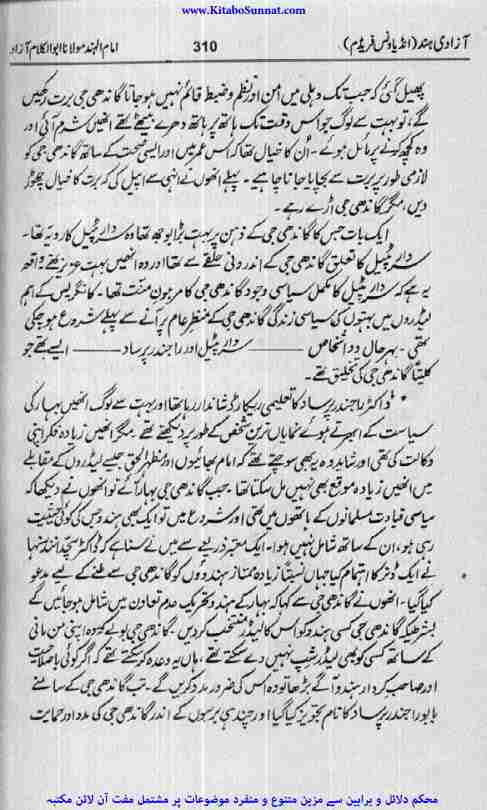 www.KitaboSunnat.com
آزادی ہند (انڈیا ونس فریڈم) 310 امام الہند مولانا ابوالکلام آزاد
پھیل گئی کہ جب تک دہلی میں امن اور نظم و ضبط قائم نہیں ہو جاتا گاندھی جی برت رکھیں
گے، تو بہت سے لوگ جو اس وقت تک ہاتھ پر ہاتھ دھرے بیٹھے تھے انھیں شرم آئی اور
وہ کچھ کرنے پر مائل ہوئے۔ اُن کا خیال تھا کہ اس عمر میں اور ایسی صحت کے ساتھ گاندھی جی کو
لازمی طور پر برت سے بچایا جانا چاہیے۔ پہلے انھوں نے انہی سے اپیل کی کہ برت کا خیال چھوڑ
دیں، مگر گاندھی جی اڑے رہے۔
ایک بات جس کا گاندھی جی کے ذہن پر بہت بڑا بوجھ تھا وہ سردار پٹیل کا رویہ تھا۔
سردار پٹیل کا تعلق گاندھی جی کے اندرونی حلقے سے تھا اور وہ انھیں بہت عزیز تھے۔ واقعہ
یہ ہے کہ سردار پٹیل کا مکمل سیاسی وجود گاندھی جی کا مرہونِ منت تھا۔ کانگریس کے اہم
لیڈروں میں بہتوں کی سیاسی زندگی گاندھی جی کے منظرِ عام پر آنے سے پہلے شروع ہو چکی
تھی۔ بہر حال دو اشخاص —— سردار پٹیل اور راجندر پرساد —— ایسے تھے جو
کلیتاً گاندھی جی کی تخلیق تھے۔
ڈاکٹر راجندر پرساد کا تعلیمی ریکارڈ شاندار رہا تھا اور بہت سے لوگ انھیں بہار کی
سیاست کے ابھرتے ہوئے نمایاں ترین شخص کے طور پر دیکھتے تھے۔ مگر انھیں زیادہ فکر اپنی
وکالت کی تھی اور شاید وہ یہ بھی سوچتے تھے کہ امام بھائیوں اور مظہر الحق جیسے لیڈروں کے مقابلے
میں انھیں زیادہ موقع بھی نہیں مل سکتا تھا۔ جب گاندھی جی بہار آئے تو انھوں نے دیکھا کہ
سیاسی قیادت مسلمانوں کے ہاتھوں میں تھی اور شروع میں تو ایک بھی ہندو جس کی کوئی حیثیت
رہی ہو، ان کے ساتھ شامل نہیں ہوا۔ ایک معتبر ذریعے سے میں نے سنا ہے کہ ڈاکٹر سچدانند سنہا
نے ایک ڈنر کا اہتمام کیا جہاں نسبتاً زیادہ ممتاز ہندوؤں کو گاندھی جی سے ملنے کے لیے مدعو
کیا گیا۔ انھوں نے گاندھی جی سے کہا کہ بہار کے ہندو تحریک عدم تعاون میں شامل ہو جائیں گے
بشرطیکہ گاندھی جی کسی ہندو کو اس کا لیڈر منتخب کر دیں۔ گاندھی جی بولے کہ وہ اپنی من مانی
کے ساتھ کسی کو بھی لیڈر شپ نہیں دے سکتے تھے، ہاں یہ وعدہ کر سکتے تھے کہ اگر کوئی باصلاحیت
اور صاحبِ کردار ہندو آگے بڑھا تو وہ اس کی ضرور مدد کریں گے۔ تب گاندھی جی کے سامنے
بابو راجندر پرساد کا نام تجویز کیا گیا اور چند ہی برسوں کے اندر گاندھی جی کی مدد اور حمایت
محکم دلائل و براہین سے مزین متنوع و منفرد موضوعات پر مشتمل مفت آن لائن مکتبہ